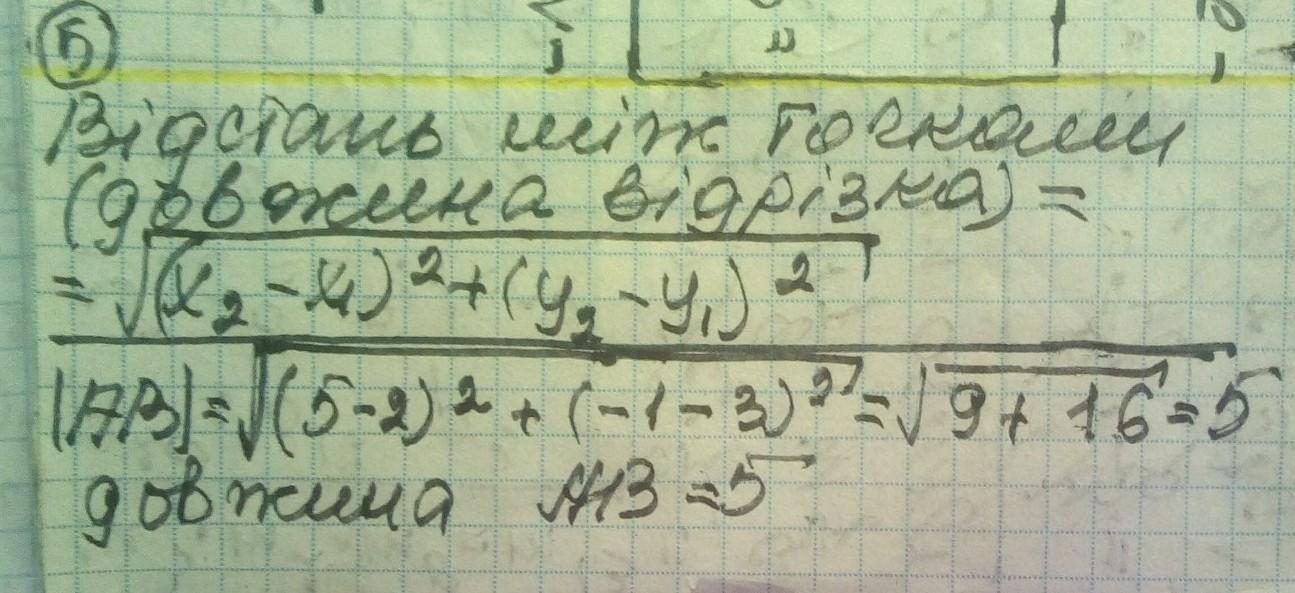 5
Відстань між точками
(довжина відрізка) =
= √(x₂ - x₁)² + (y₂ - y₁)²
|AB| = √(5-2)² + (-1-3)² = √9 + 16 = 5
довжина AB = 5